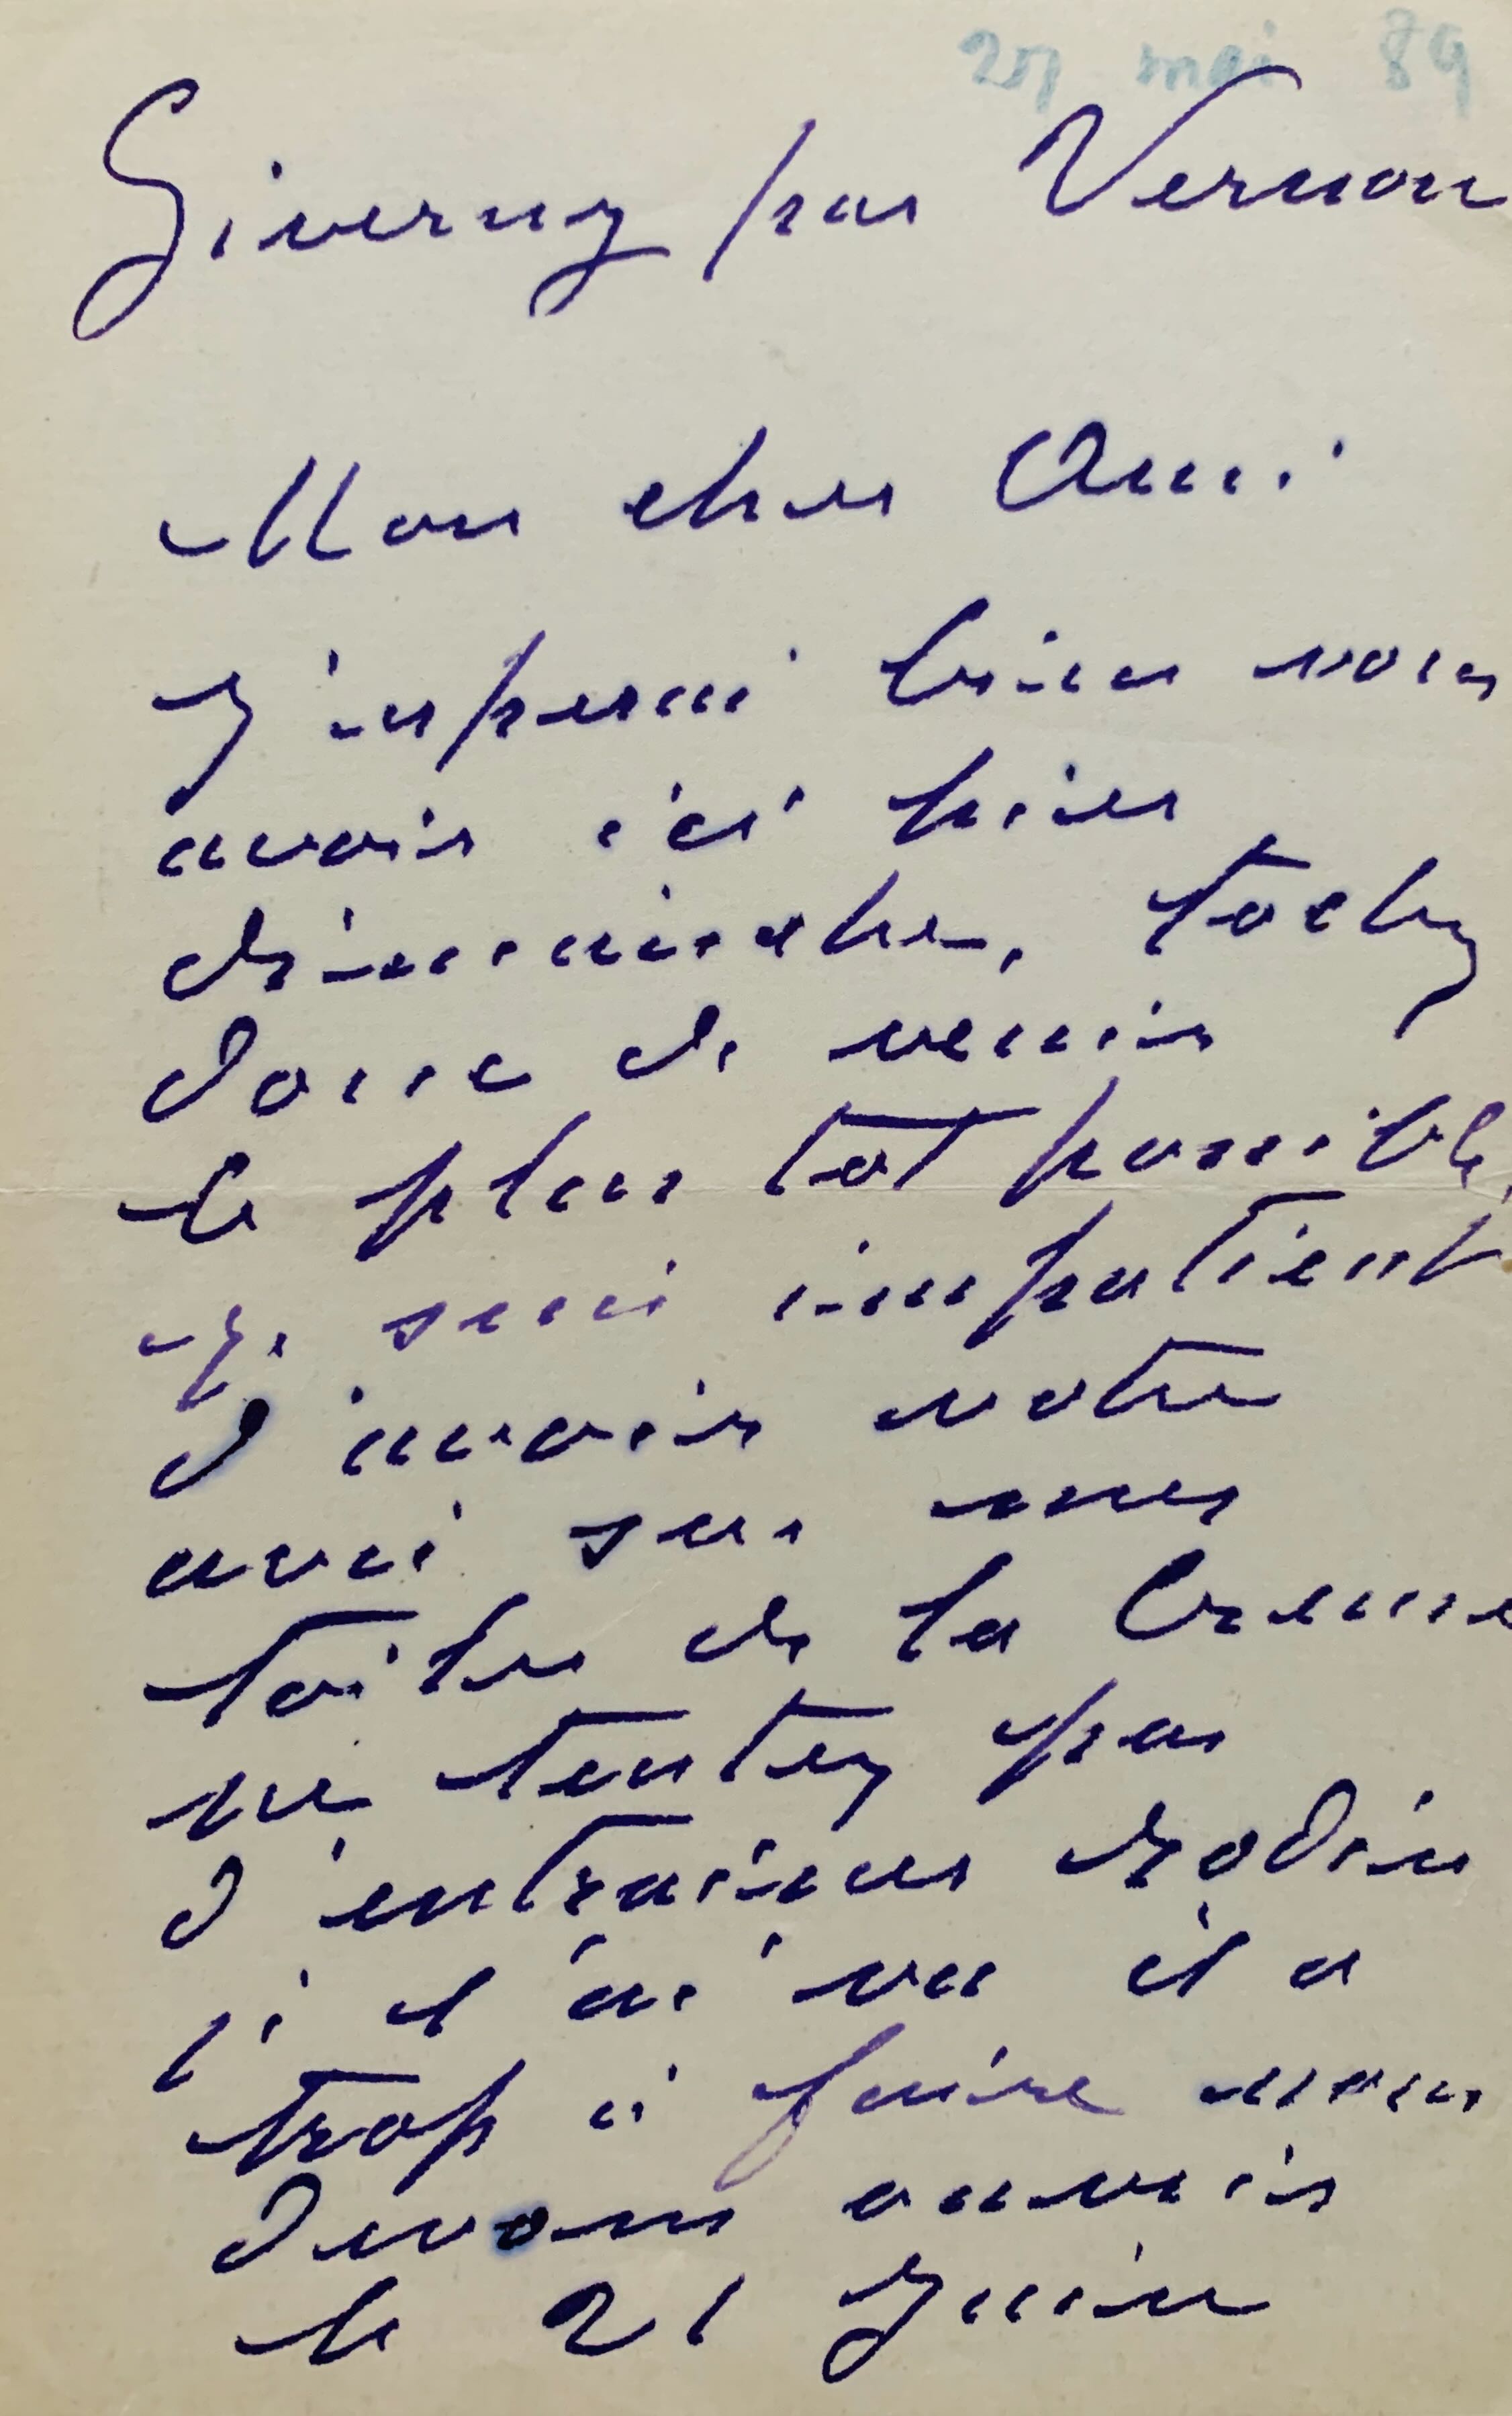 mai 89
Giverny par Vernon
Mon cher Ami
J'espérais bien vous
avoir ici hier
dimanche, tachez
donc de venir
le plus tôt possible,
je suis impatient
d'avoir votre
avis sur mes
toiles de la Creuse
ne tentez pas
d'entrainer Rodin
je l'ai vu il a
trop à faire nous
devons ouvrir
le 21 Juin